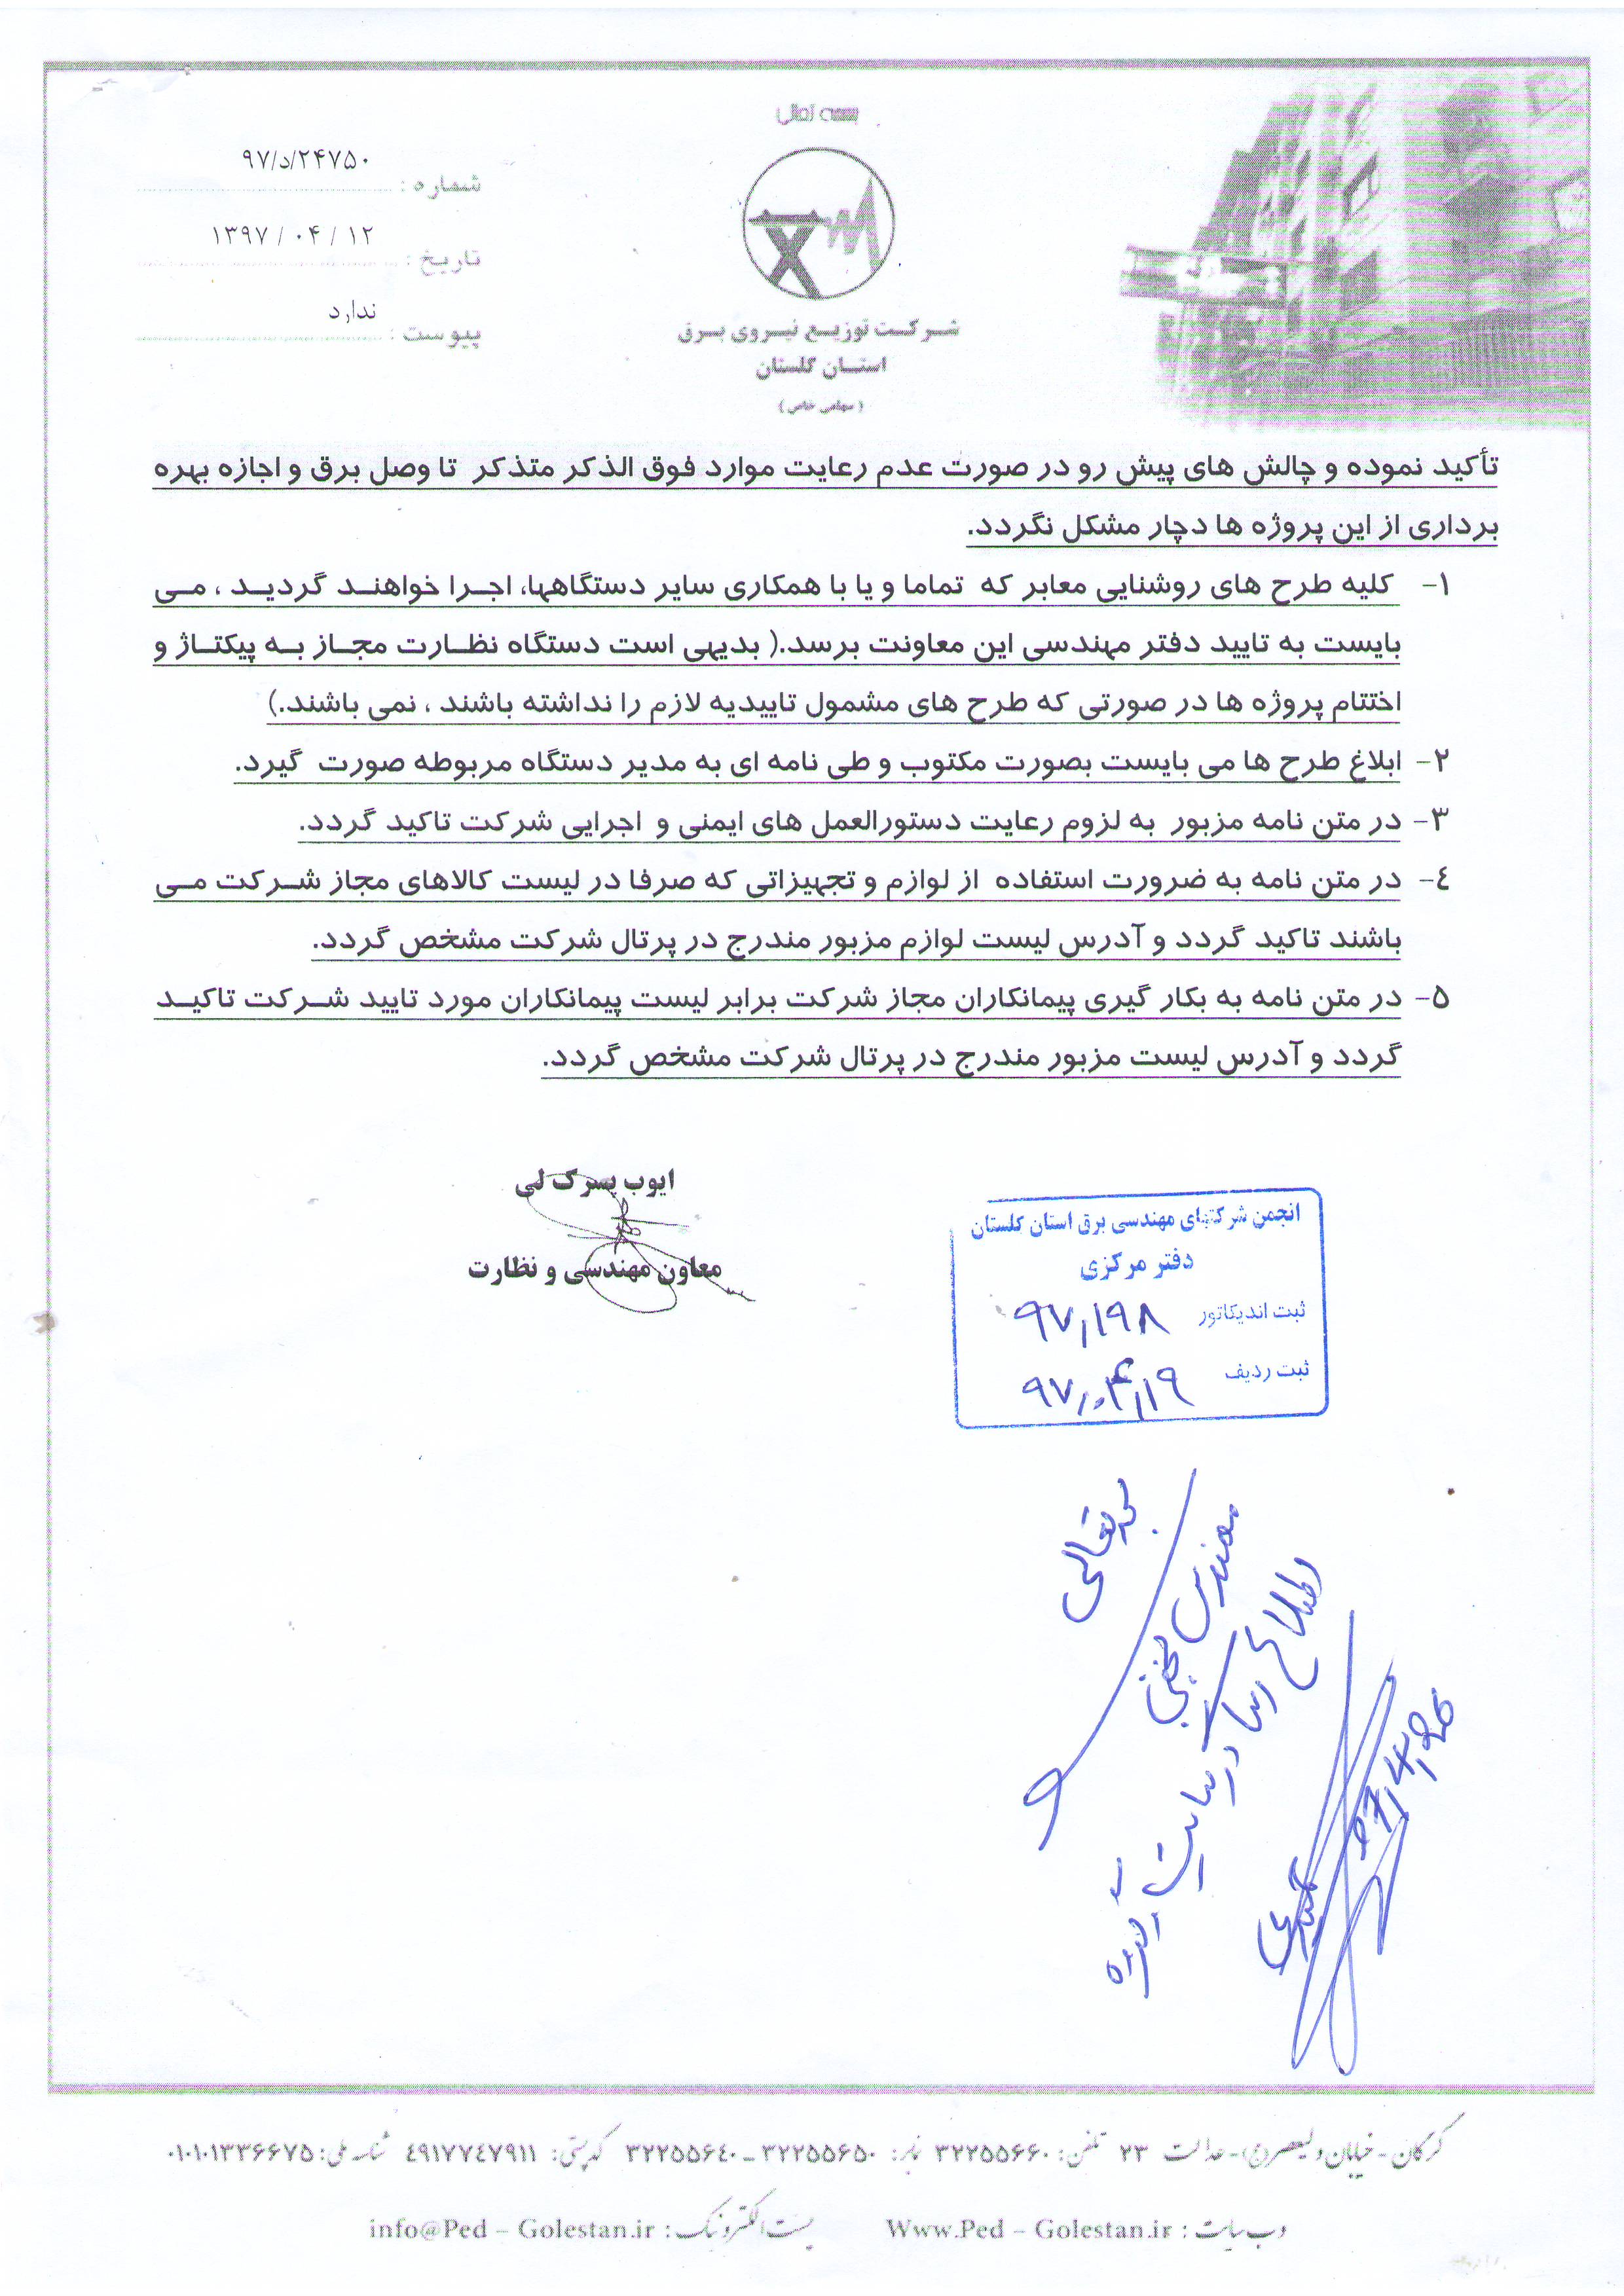 بسمه تعالی
شماره : ۹۷/د/۲۴۷۵۰
تاریخ : ۱۳۹۷ / ۰۴ / ۱۲
پیوست : ندارد
شرکت توزیع نیروی برق
استان گلستان
( سهامی خاص )
تأکید نموده و چالش های پیش رو در صورت عدم رعایت موارد فوق الذکر متذکر تا وصل برق و اجازه بهره
برداری از این پروژه ها دچار مشکل نگردد.
۱- کلیه طرح های روشنایی معابر که تماما و یا با همکاری سایر دستگاهها، اجرا خواهند گردید ، می
بایست به تایید دفتر مهندسی این معاونت برسد.( بدیهی است دستگاه نظارت مجاز به پیکتاژ و
اختتام پروژه ها در صورتی که طرح های مشمول تاییدیه لازم را نداشته باشند ، نمی باشند.)
۲- ابلاغ طرح ها می بایست بصورت مکتوب و طی نامه ای به مدیر دستگاه مربوطه صورت گیرد.
۳- در متن نامه مزبور به لزوم رعایت دستورالعمل های ایمنی و اجرایی شرکت تاکید گردد.
٤- در متن نامه به ضرورت استفاده از لوازم و تجهیزاتی که صرفا در لیست کالاهای مجاز شرکت می
باشند تاکید گردد و آدرس لیست لوازم مزبور مندرج در پرتال شرکت مشخص گردد.
۵- در متن نامه به بکار گیری پیمانکاران مجاز شرکت برابر لیست پیمانکاران مورد تایید شرکت تاکید
گردد و آدرس لیست مزبور مندرج در پرتال شرکت مشخص گردد.
ایوب پسرک لی
معاون مهندسی و نظارت
انجمن شرکتهای مهندسی برق استان گلستان
دفتر مرکزی
ثبت اندیکاتور ۹۷/۱۹۸
ثبت ردیف ۹۷/۰۴/۱۹
بسمه تعالی
مهندس
اطلاع رسانی در سایت
گرگان - خیابان ولیعصر(عج) - عدالت ۲۳ تلفن: ۳۲۲۵۵۶۶۰ نمابر: ۳۲۲۵۵۶۵۰ - ۳۲۲۵۵۶٤۰ کدپستی: ٤۹۱۷۷٤۷۹۱۱ شناسه ملی: ۰۱۰۱۰۱۳۳۶۶۷۵
وب سایت : Www.Ped – Golestan.ir پست الکترونیک : info@Ped – Golestan.ir